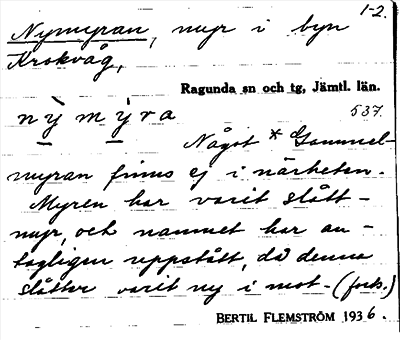 1-2.
Nymyran, myr i byn
Krokvåg,
Ragunda sn och tg, Jämtl. län.
537.
nỳmýra
Något *Gammel-
myran finns ej i närheten.
Myren har varit slått-
myr, och namnet har an-
tagligen uppstått, då denna
slåtter varit ny i mot- (forts.)
BERTIL FLEMSTRÖM 1936.